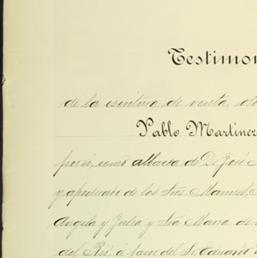 Testimo
de la escritura de venta,
Pablo Martinez
por sí, como albacea de D. José
y apoderado de los Sres. Manuel,
Angela y Julia y Sra. Maria de
del Rio, á favor del Sr. Eduardo